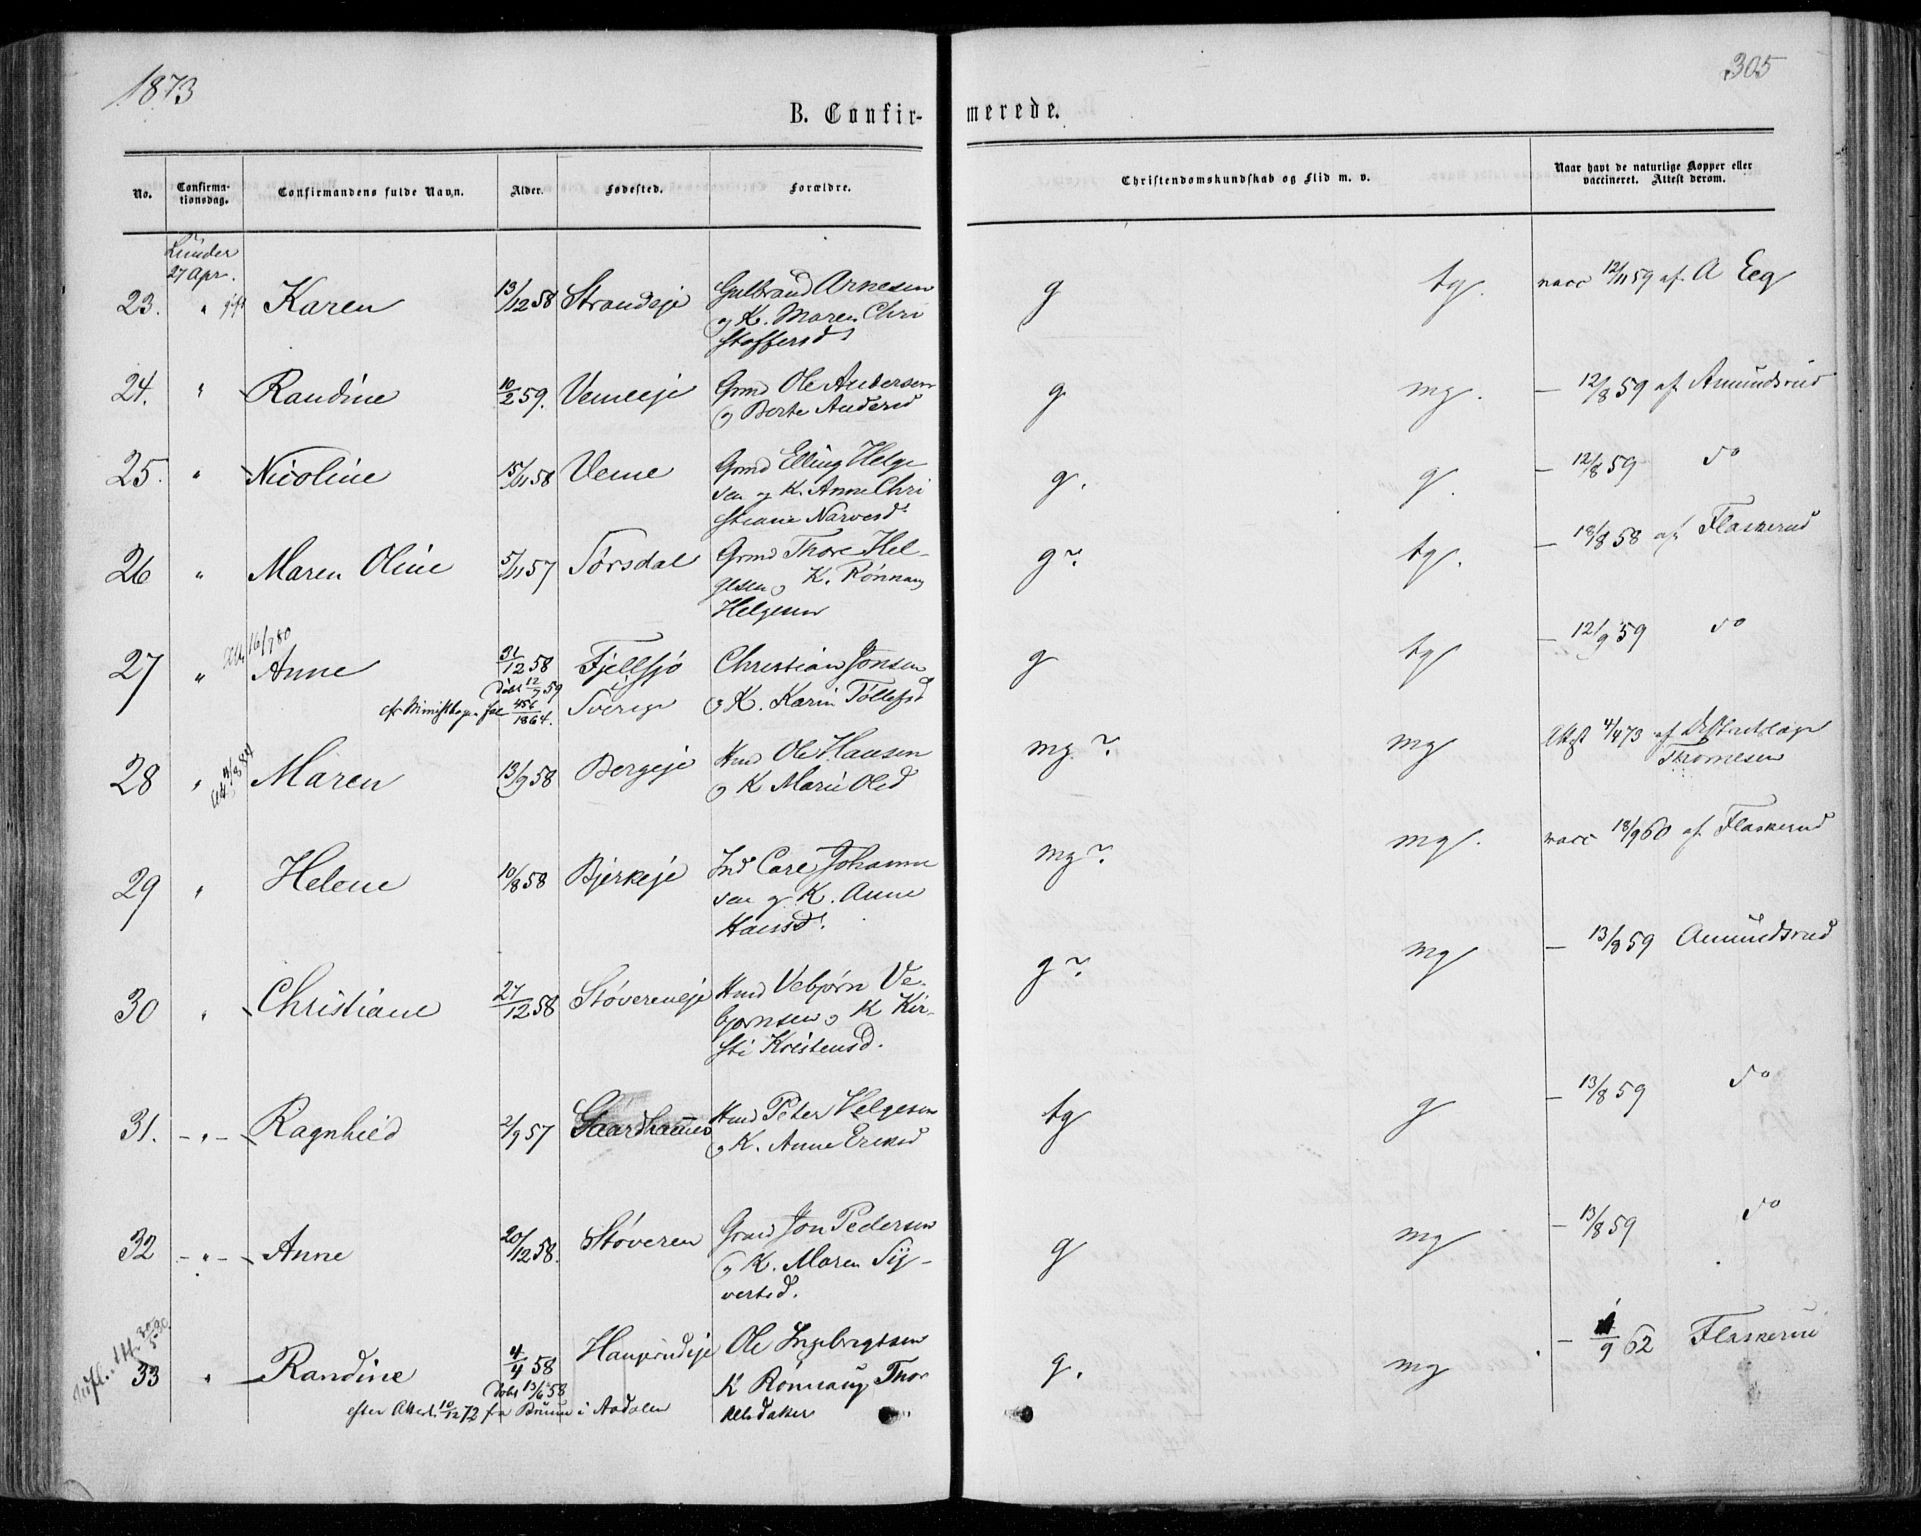 1873
305
B. Confir- merede.
No. Confirma-tionsdag. Confirmandens fulde Navn. Alder. Fødested. Forældre. Christendomskundskab og Flid m. v. Naar havt de naturlige Kopper eller vaccineret. Attest derom.
Lunder
27 Apr.
23. " Karen 13/12 58 Strandeje Gulbrand Arnesen g tg. vacc 12/11 59 af A Eeg
og K. Maren Chri
stoffersd
24. " Randine 10/2 59. Vemeeje Grmd Ole Andersen g mg. — 12/8 59 af Amundsrud
og Berte Andersd
25. " Nicoline 15/11 58 Veme Grmd Elling Helge g. g. — 12/8 59 do
sen og K. Anne Chri
stiane Narvesd
26 " Maren Oline 5/11 57 Sørsdal Grmd Thore Hel- g? tg. — 18/8 58 af Flaskerud
gesen og K. Rønnaug
Helgesen
27 " Anne 31/12 58 Fjellsjø Christian Jonsen g tg — 12/9 59 do
døbt 12/9 59 i
456/1864. Sverige og K. Karin Tollefsd
28 " Maren 13/9 58 Bergeje Hmd Ole Hansen mg? mg Attest 4/4 73 af Distriktslæge
og K Marie Olsd Thomesen
29 " Helene 10/8 58 Bjerkeje Ind Carl Johann mg? mg. vacc 18/9 60 af Flaskerud
sen og K. Anne
Hansd.
30 " Christiane 27/12 58 Støvereneje Hmd Vebjørn Ve- g? mg — 13/8 59 Amundsrud
bjørnsen og K Kir-
sti Kristensd.
31. - " - Ragnhild 2/9 57 Gaardhammer Hmd Peter Helgesen tg g — 13/8 59 do
og K. Anne Eriksd
32 - " - Anne 20/12 58. Støveren Grmd Jon Pedersen g mg — 13/8 59 do
og K. Maren Sy-
vertsd.
33 " Randine 4/4 58 Haugerudeje Ole Ingebrigtsen g. mg — 1/9 62 Flaskerud
døbt 13/6 58 K Rønnaug Thor
efter Attest 10/12 72 fra Bruun i Aadalen